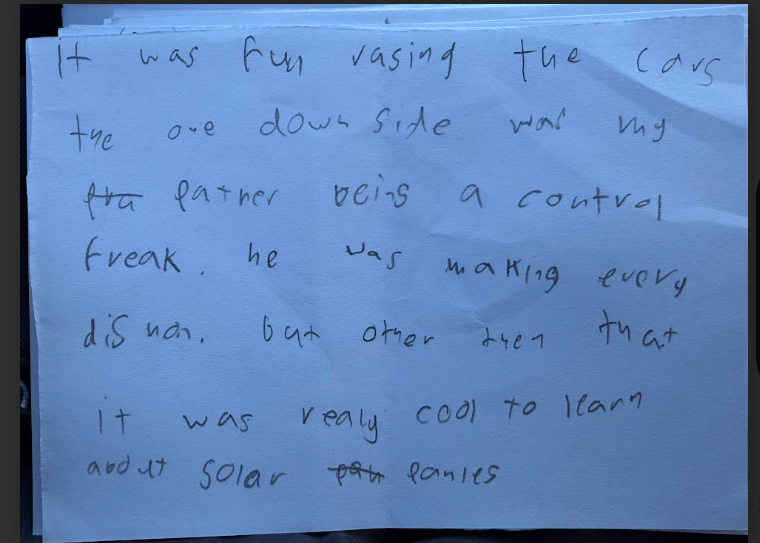 It was fun rasing the cars
the one down side was my
patner being a control
freak. he was making every
disnon. but other then that
it was realy cool to learn
about solar panles